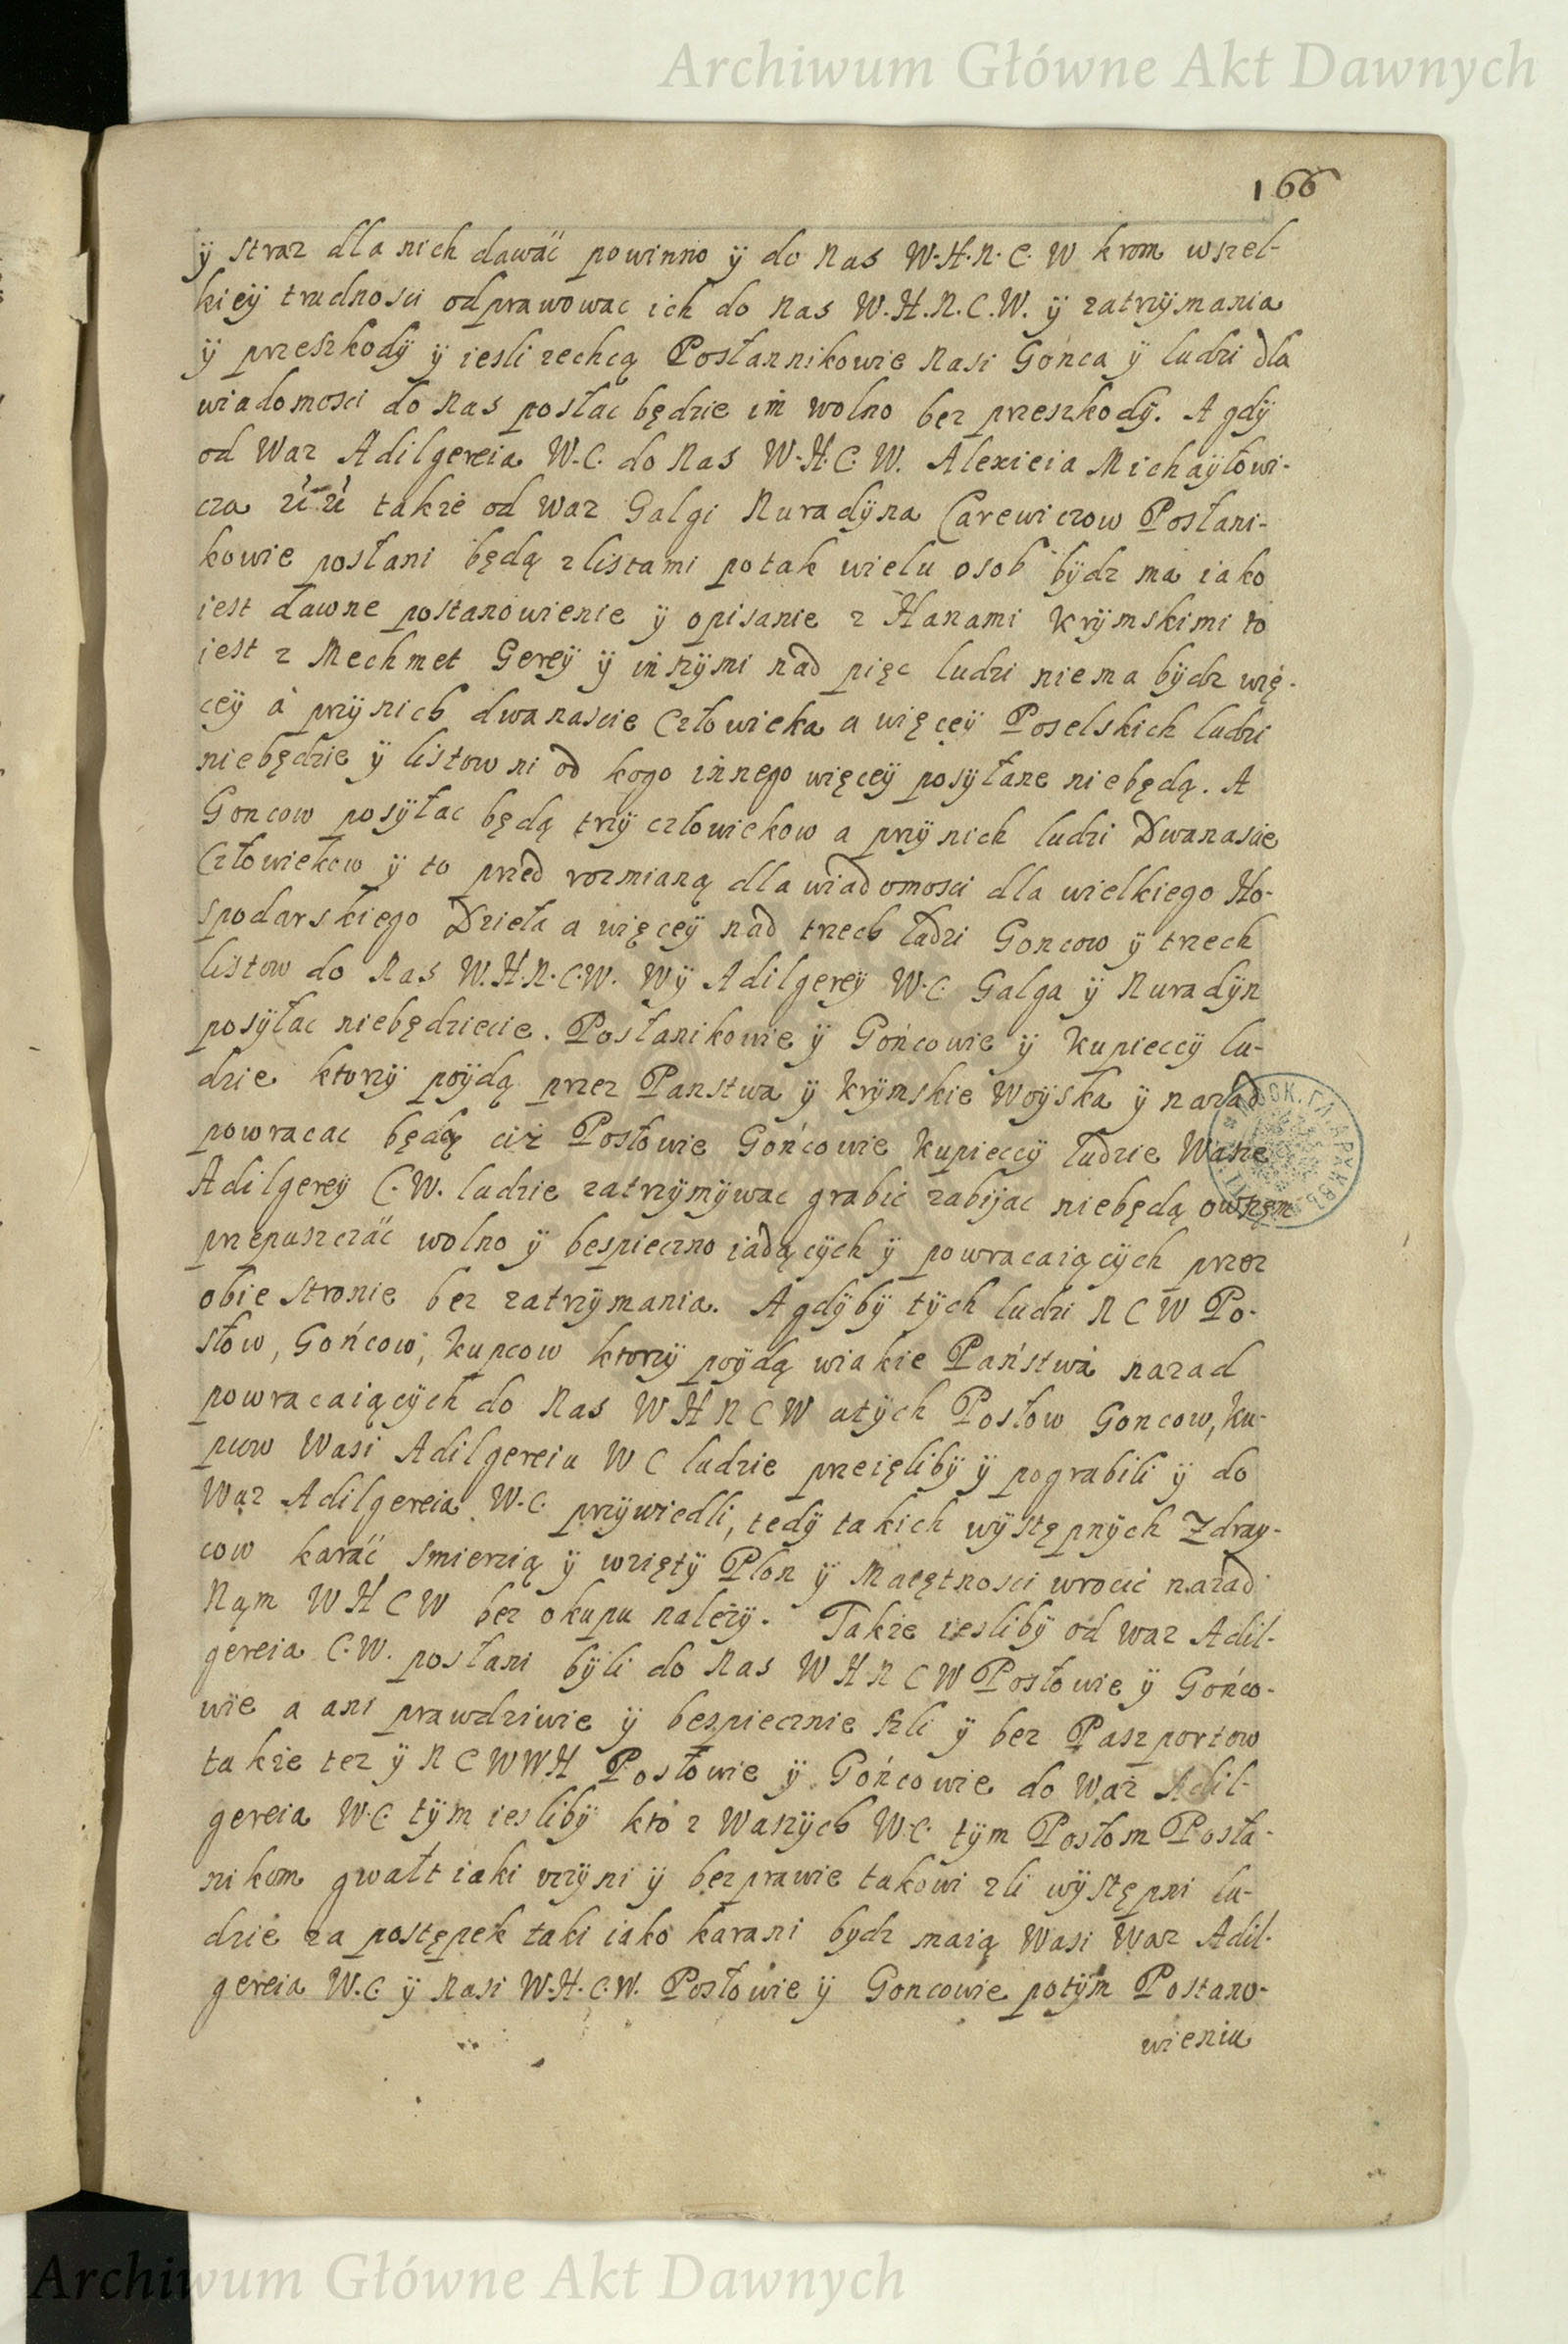 Archiwum Główne Akt Dawnych
166
ÿ straz dla nich dawać powinno ÿ do Nas W.H.N.C.W krom wszel-
kieÿ trudnosci odprawowac ich do Nas W.H.N.C.W. ÿ zatrzÿmania
ÿ przeszkodÿ ÿ iesli zechcą Posłannikowie Nasi Gónca ÿ ludzi dla
wiadomosci do Nas posłac będzie im wolno bez przeszkodÿ. A gdÿ
od Waz Adilgereia W.C. do Nas W.H.C.W. Alexieia Michaÿłowi-
cza także od Waz Galgi Nuradÿna Carewiczow Posłani-
kowie posłani będą z listami po tak wielu osob bÿdz ma iako
iest dawne postanowienie ÿ opisanie z Hanami Krÿmskimi to
iest z Mechmet Gereÿ ÿ inszÿmi nad pięc ludzi niema bÿdz wię-
ceÿ à przÿ nich dwanascie Człowieka a więceÿ Poselskich ludzi
niebędzie ÿ listow ni od kogo innego więceÿ posÿłane niebędą. A
Goncow posÿłac będą trzÿ człowiekow a przÿ nich ludzi Dwanascie
Człowiekow ÿ to przed rozmianą dla wiadomosci dla wielkiego Ho-
spodarskiego Dzieła a więceÿ nad trzech ludzi Goncow ÿ trzech
listow do Nas W.H.N.C.W. Wÿ Adilgereÿ W.C. Galga ÿ Nuradÿn
posÿłac niebędziecie. Posłanikowie ÿ Gońcowie ÿ Kupieccÿ lu-
dzie ktorzÿ poÿdą przez Panstwa ÿ Krÿmskie Woÿska ÿ nazad
powracac będą ciż Posłowie Gońcowie Kupieccÿ ludzie Wasze
Adilgereÿ C.W. ludzie zatrzÿmÿwac grabić zabijac niebędą owszem
przepuszczać wolno ÿ bespieczno iadącÿch ÿ powracaiącÿch przez
obie stronie bez zatrzÿmania. A gdÿbÿ tÿch ludzi N C W Po-
słow, Gońcow, Kupcow ktorzÿ poÿdą w iakie Państwa nazad
powracaiącÿch do Nas W H N C W a tÿch Posłow Goncow, Ku-
pcow Wasi Adilgereiu W C ludzie przeięlibÿ ÿ pograbili ÿ do
Waz Adilgereia W.C. przÿwiedli, tedÿ takich wÿstępnÿch Zdray-
cow karać smierzią ÿ wziętÿ Plon ÿ Maiętnosci wrocić nazad
Nąm W H C W bez okupu należÿ. Także ieslibÿ od Waz Adil-
gereia C.W. posłani bÿli do Nas W H N C W Posłowie ÿ Gońco-
wie a ani prawdziwie ÿ bespiecznie szli ÿ bez Paszportow
także tez ÿ N C W W H Posłowie ÿ Gońcowie do Waz Adil-
gereia W.C. tÿm ieslibÿ kto z Waszÿch W.C. tÿm Posłom Posła-
nikom gwałt iaki vczÿni ÿ bezprawie takowi zli wÿstępni lu-
dzie za postępek taki iako karani bydz maią Wasi Waz Adil-
gereia W.C. ÿ Nasi W.H.C.W. Posłowie ÿ Goncowie potÿm Postano-
wieniu
Archiwum Główne Akt Dawnych